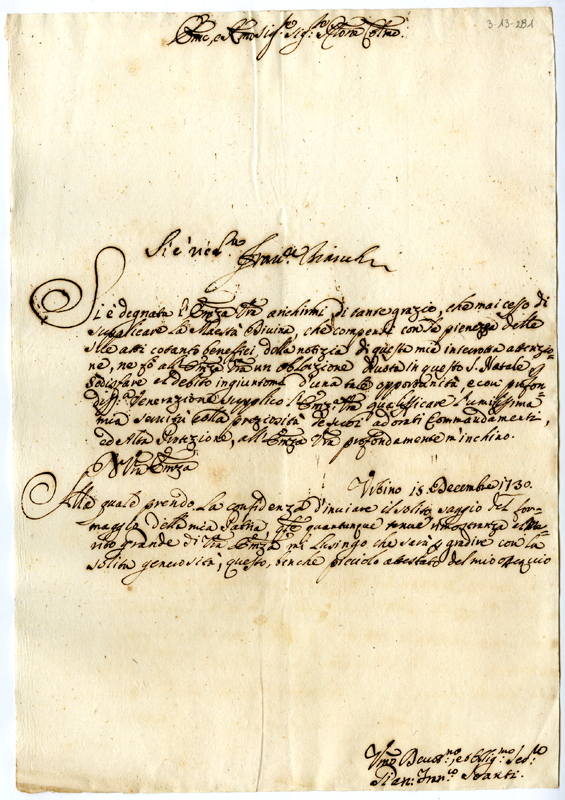 3-13-281
Em.o, e Rm.o Sig.r Sig.r P.rone Colmo.
Si è ric.to
Fran.co
Si è degnata l'Emza Vra arichirmi di tante grazie, che mai cesso di
supplicare la Maestà Divina, che compensi con la pienezza delle
Sue atti cotanto benefici, della notizia di questa mia interna attenzio=
ne, ne fo all'Emza Vra un oblazione divota in questo S. Natale p
sodisfare al debito ingiuntomi d'una tale opportunità, e con profon=
diss.a Venerazione supplico l'Emza Vra qualificare l'umilissima
mia servitù colla preziosità de suoi adorati Commandamenti,
ed Alta Protezione, all'Emza Vra profondamente m'inchino.
D Vra Emza
Urbino 15 Decembre 1730.
Alla quale prendo la confidenza d'inviare il solito saggio del for=
maggio della mia Patria, che quantunque tenue in riguardo al me=
rito grande di Vra Emza mi lusingo che sarà p gradire con la
solita generosità, questo, benche picciolo attestato del mio ossequio
Vmo Devot.mo, et Oblig.mo Ser.re
Gian: Fran.co